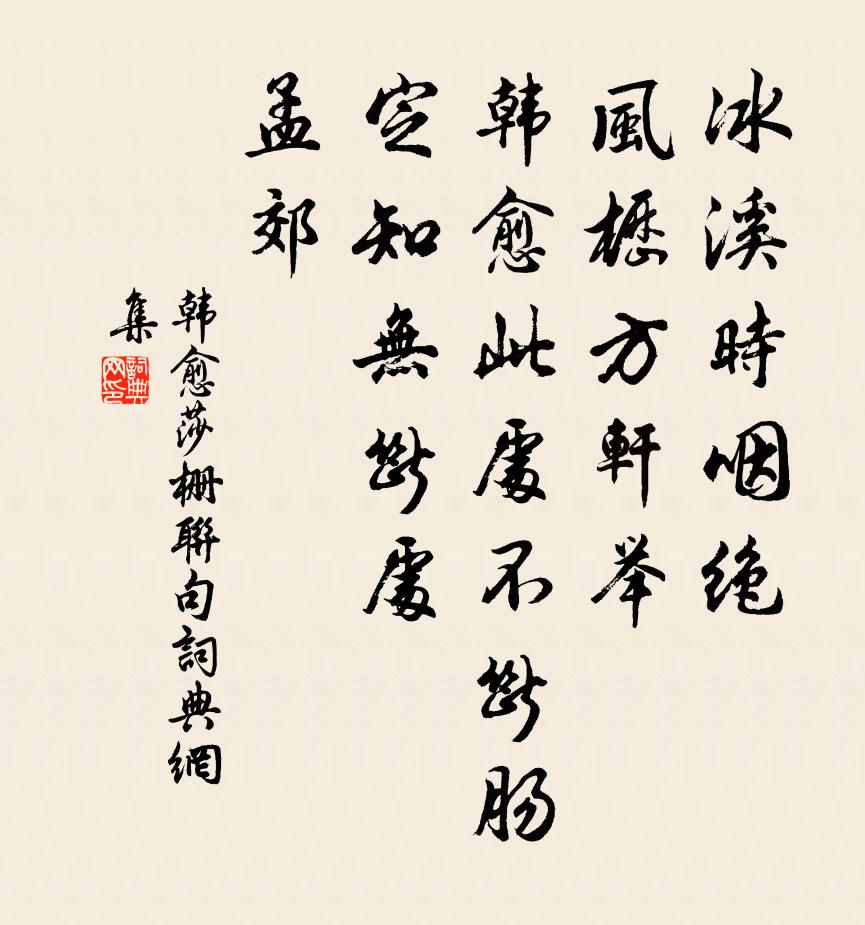 冰溪時咽絶
風櫪方軒举
韓愈此處不斷肠
定知無斷處
孟郊
韓愈莎栅聯句詞典網
集
詞典网印